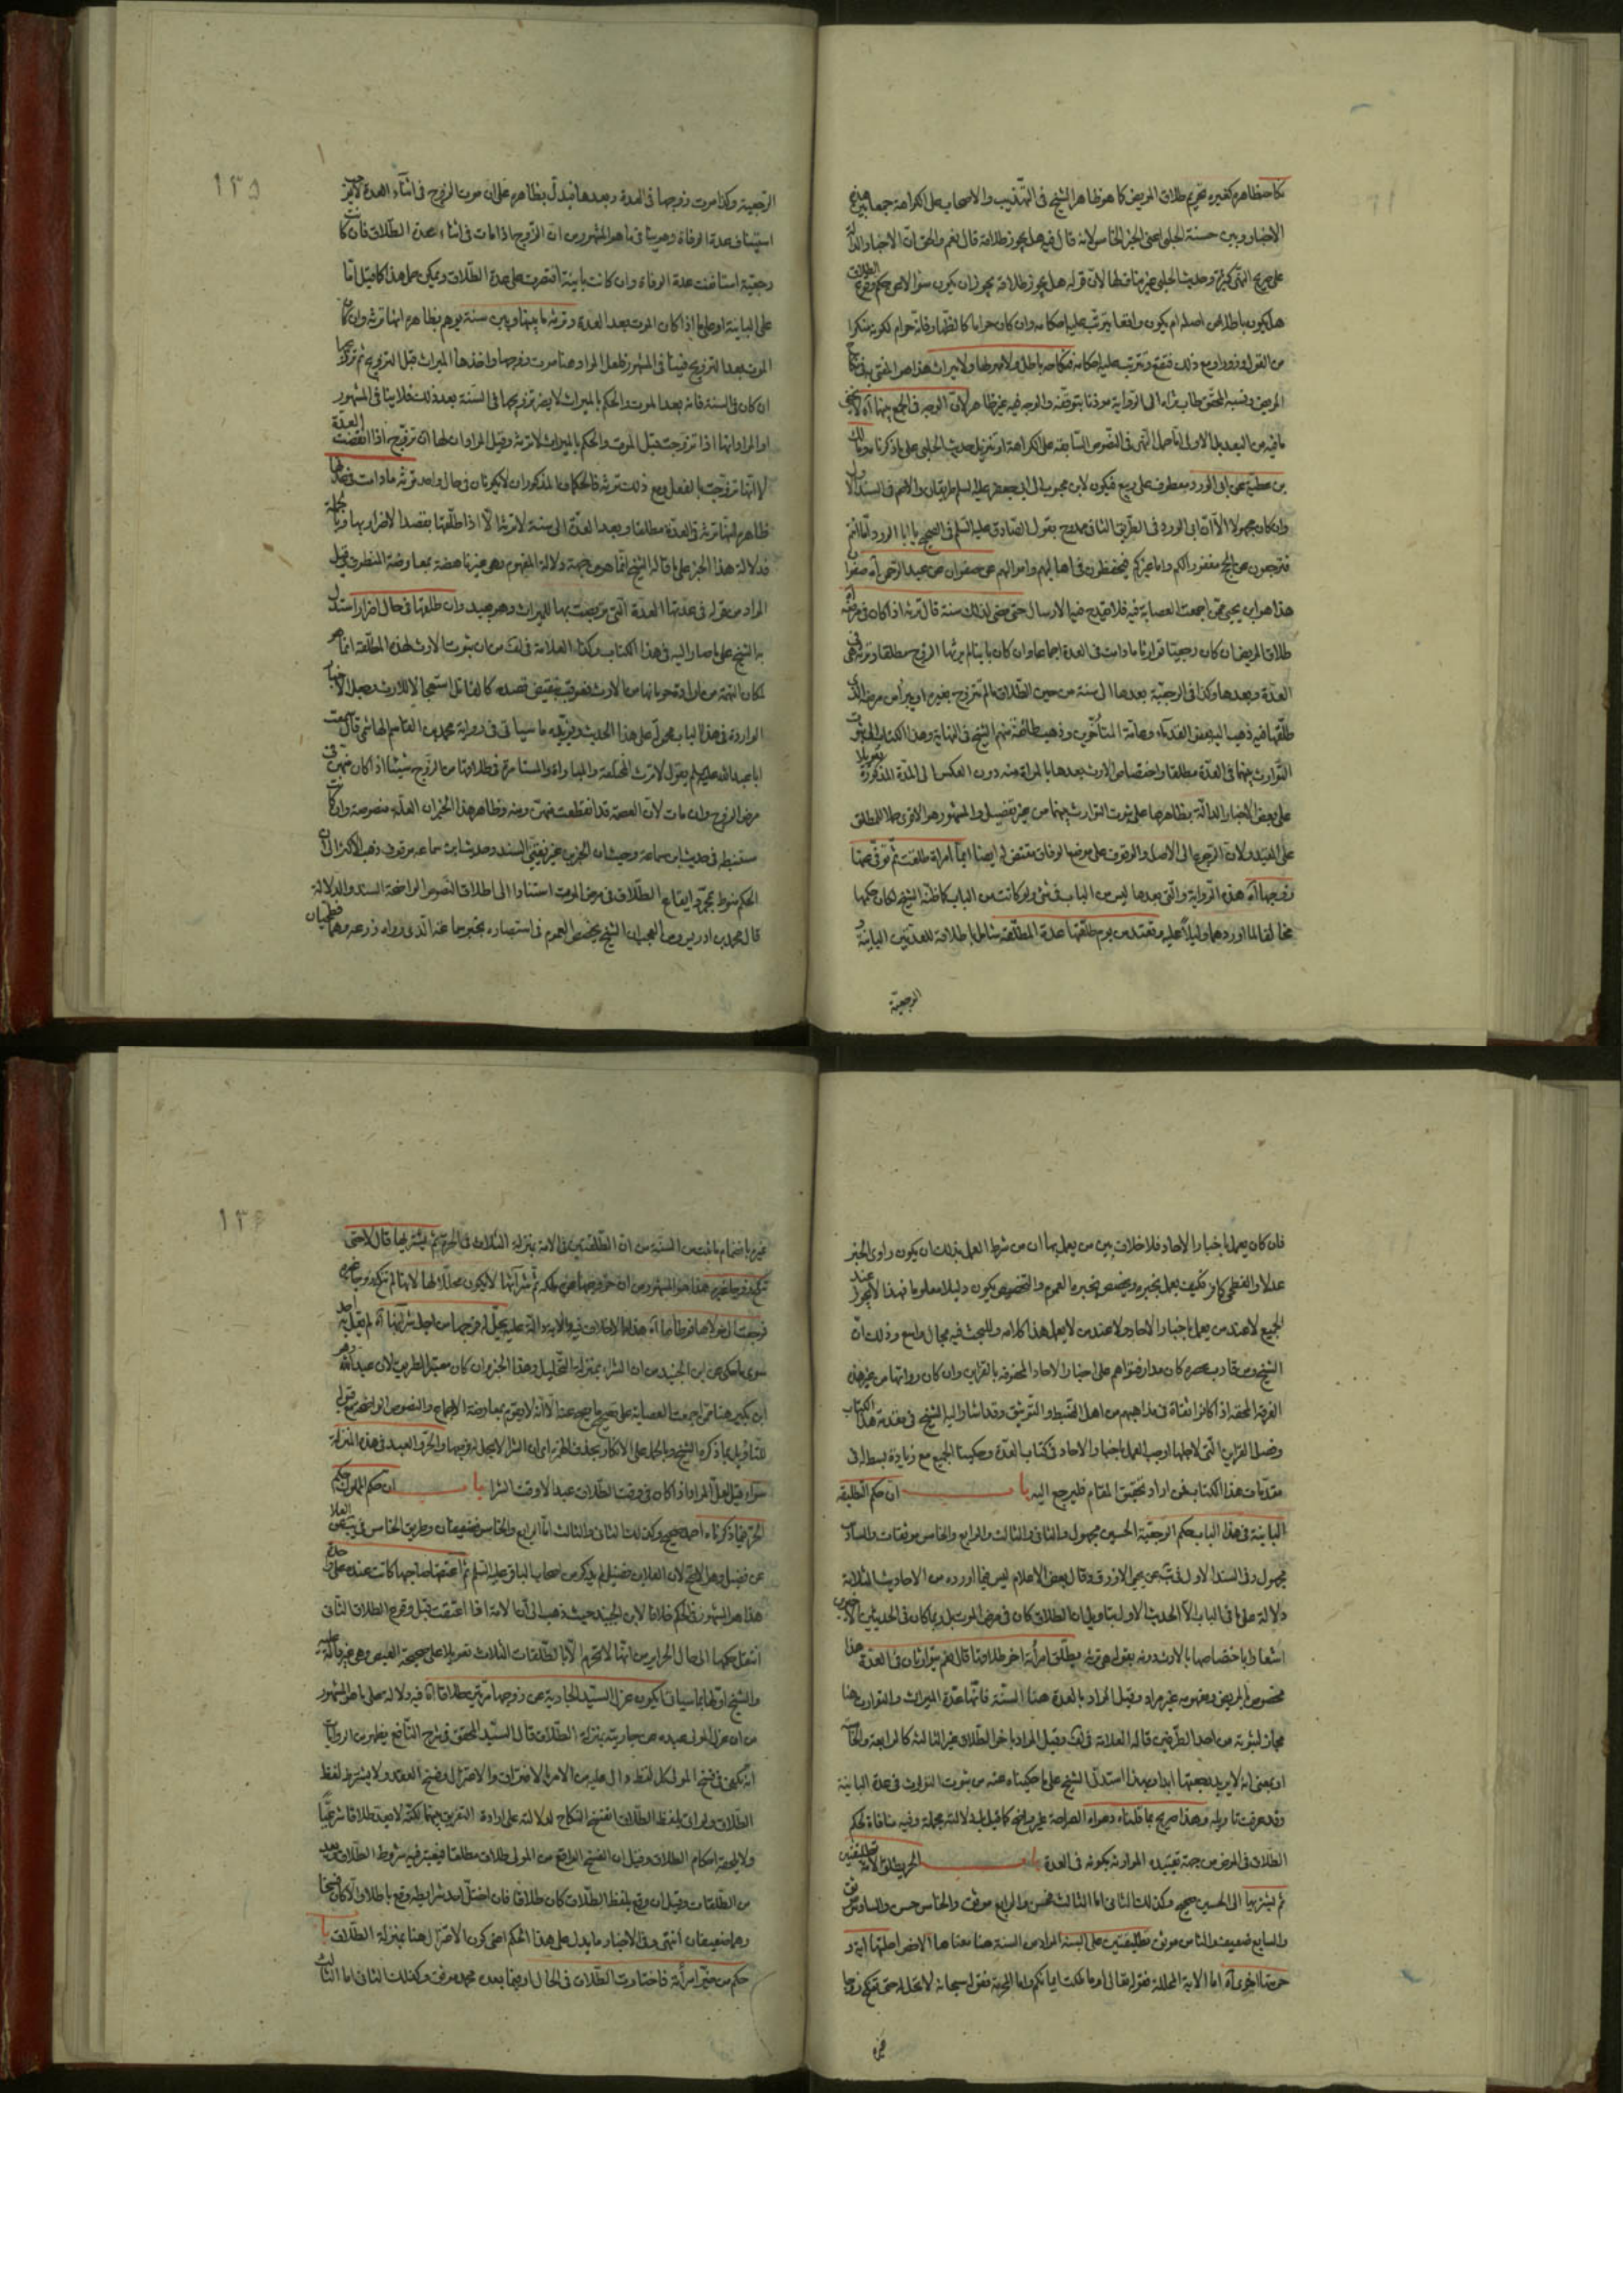 نكاحه ظاهره كغيره تحريم طلاق المريض كما هو ظاهر الشيخ في التهذيب والاصحاب على الكراهة جمعا بين هذه
الاخبار وبين حسنة الحلبي اعني الخبر الخامس لانه قال فيه هل يجوز طلاقه قال نعم والحق ان الاخبار الدالة
على صريح النهي كثيرة وحديث الحلبي غير مناف لها لان قوله هل يجوز طلاقه يجوز ان يكون سؤالا عن حكم وقوع الطلاق
هل يكون باطلا من اصله ام يكون واقعا يترتب عليه احكامه وان كان حراما كالظهار فانه حرام لكونه منكرا
من القول وزورا ومع ذلك فيقع ويترتب عليه احكامه فنكاحه باطل ولا مهر لها ولا ميراث هذا هو المفتى به في نكاح
المريض ونسبه المحقق طاب ثراه الى الرواية موذنا بتوقفه والوجه فيه غير ظاهر لان الوجه في الجمع بينها آه لا يخفى
ما فيه من البعد بل الاولى اما حمل النهي في النصوص السابقة على الكراهة او تنزيل حديث الحلبي على ما ذكرنا
بن عطية عن ابي الورد
وان كان مجهولا الا ان ابي الورد في الطريق الثاني ممدوح بقول الصادق عليه السلم في الصحيح يا با الورد اما انتم
فترجعون عن الحج مغفورا لكم واما غيركم فيحفظون في اهاليهم واموالهم عن صفوان عن عبد الرحمن آه صفوان
هذا هو ابن يحيى ممن اجمعت العصابة فيه فلا يقدح فيه الارسال حتى مضى لذلك سنة قال ترثه اذا كان في مرضه
طلاق المريض ان كان رجعيا توارثا ما دامت في العدة اجماعا وان كان باينا لم يرثها الزوج مطلقا وترثه هي في
العدة وبعدها وكذا في الرجعية بعدها الى سنة من حين الطلاق ما لم تتزوج بغيره او يبرأ من مرضه الذي
طلقها فيه ذهب اليه بعض القدماء وعامة المتأخرين وذهب طائفة منهم الشيخ في النهاية وهذا الكتاب الى ثبوت
التوارث بينهما في العدة مطلقا واختصاص الارث بعدها بالمراة منه دون العكس الى المدة المذكورة تعويلا
على بعض الاخبار الدالة بظاهرها على ثبوت التوارث بينهما من غير تفصيل والمشهور هو الاقوى حملا للمطلق
على المقيد ولان الرجوع الى الاصل والوقوف على موضع الوفاق مقتض له ايضا ايما امراة طلقت ثم توفي عنها
زوجها آه هذه الرواية والتي بعدها ليس من الباب في شئ ولو كانت من الباب كما ظنه الشيخ لكان حكمها
مخالفا لما اوردهما دليلا عليه وتعتد من يوم طلقها عدة المطلقة شامل باطلاقه للعدتين الباينة و
الرجعية
١٣٥
الرجعية وكذا موت زوجها في المدة وبعدها فيدل بظاهره على ان موت الزوج في اثناء العدة لا يوجب
استيناف عدة الوفاة وهو ينافي ما هو المشهور من ان الزوج اذا مات في اثناء عدة الطلاق فان كانت
رجعية استانفت عدة الوفاة وان كانت باينة اقتصرت على عدة الطلاق ويمكن حمل هذا كما قيل اما
على الباينة او على ما اذا كان الموت بعد العدة وترثه ما بينها وبين سنة يوهم بظاهره انها ترثه وان كان
الموت بعد التزويج فينافي المشهور فلعل المراد هنا موت زوجها واخذها الميراث قبل التزويج ثم تزوجها
ان كان في السنة فانه بعد الموت والحكم بالميراث لا يضر تزويجها في السنة بعد ذلك فلا ينافي المشهور
او المراد انها اذا تزوجت قبل الموت والحكم بالميراث لا ترثه وقيل المراد ان لها ان تتزوج اذا انقضت العدة
لا انها تزوجت بالفعل ومع ذلك ترثه فالحكمان المذكوران لا يكونان في حال واحد ترثه ما دامت في عدتها
ظاهره انها ترثه في العدة مطلقا وبعد العدة الى سنة لا ترثه الا اذا طلقها بقصد الاضرار بها وبالجملة
فدلالة هذا الخبر على ما قاله الشيخ انما هو من جهة دلالة المفهوم وهي غير ناهضة بمعارضة المنطوق قيل
المراد من قوله في عدتها العدة التي تربصت بها للميراث وهو بعيد وان طلقها في حال اضرار استدل
به الشيخ على ما صار اليه في هذا الكتاب وكذا العلامة في لف من ان ثبوت الارث لهذه المطلقة انما هو
لمكان التهمة من ارادة حرمانها من الارث فعوقب بنقيض قصده كالقاتل استعجالا للارث وحمل الاخبار
الواردة في هذا الباب مجملة على هذا الحديث ويؤيده ما سياتي في رواية محمد بن القاسم الهاشمي قال سمعت
ابا عبد الله عليه السلم يقول لا ترث المختلعة والمباراة والمستامرة في طلاقها من الزوج شيئا اذا كان منهن في
مرض الزوج وان مات لان العصمة قد انقطعت منهن ومنه وظاهر هذا الخبر ان العلة منصوصة وان كانت
مستنبطة في حديث ابن سماعة وحيث ان الخبرين غير نقيي السند وحديث ابن سماعة موقوف ذهب الاكثر الى ان
الحكم منوط بمجرد ايقاع الطلاق في مرض الموت استنادا الى اطلاق النصوص الواضحة السند والدلالة
قال محمد بن ادريس ومن العجب ان الشيخ يخصص العموم في استبصاره بخبر سماعة الذي رواه زرعة وهما فطحيان
فان كان يعمل باخبار الاحاد فلا خلاف بين من يعمل بها ان من شرط العمل بذلك ان يكون راوي الخبر
عدلا والفطحي كافر فكيف يعمل بخبره ويخصص بخبره العموم والتخصيص يكون دليلا معلوما فهذا لا يجوز عند
الجميع لا عند من يعمل باخبار الاحاد ولا عند من لا يعمل هذا كلامه وللبحث فيه مجال واسع وذلك ان
الشيخ ومن قارب عصره كان مدار فتواهم على اخبار الاحاد المحفوفة بالقراين وان كان رواتها من غير هذه
الفرقة المحقة اذ اكانوا ثقاة في مذاهبهم من اهل الضبط والتوثيق وقد اشار اليه الشيخ في مقدمة هذا الكتاب
وفصل القراين التي لاجلها اوجب العمل باخبار الاحاد في كتاب العدة وحكينا الجميع مع زيادة بسط له في
مقدمات هذا الكتاب فمن اراد تحقيق المقام فليرجع اليه باب ان حكم التطليقة
الباينة في هذا الباب حكم الرجعية الحسين مجهول والثاني والثالث والرابع والخامس موثقات والسادس
مجهول وفي السند الاول في يب عن يحيى الازرق وقال بعض الاعلام ليس فيما اورده من الاحاديث الثلاثة
دلالة على ما في الباب الا الحديث الاول بتاويل ان الطلاق كان في مرض الموت بل ربما كان في الحديثين الاخيرين
اشعارا باختصاصها بالارث دونه بقوله هي ترثه يطلق امرأته اخر طلاقها قال نعم يتوارثان في العدة هذا
مخصوص بالمريض ومفهومه غير مراد وقيل المراد بالعدة هنا السنة فانها عدة الميراث والتوارث هنا
مجاز لثبوته من احد الطرفين قاله العلامة في لف وقيل المراد باخر الطلاق غير الثالثة كالرابعة والخامسة
او بمعنى انه لا يريد رجعتها ابدا وبهذا استدل الشيخ على ما حكيناه عنه من ثبوت التوارث في عدة الباينة
وقد عرفت تاويله وهذا صريح بما قلناه دعواه الصراحة غير واضح كما قيل بل دلالته مجملة وفيه منافاة لحكم
الطلاق في المرض من جهة تقييده الموارثة بكونه في العدة باب الحر يطلق الامة تطليقتين
ثم يشتريها الى الحسين صحيح وكذلك الثاني اما الثالث فحسن والرابع موثق والخامس حسن والسادس موثق
والسابع ضعيف والثامن موثق تطليقتين على السنة المراد من السنة هنا معناها الاخص احلتها اية و
حرمتها اخرى آه اما الاية المحللة فقوله تعالى او ما ملكت ايمانكم واما المحرمة فقوله سبحانه لا تحل له حتى تنكح زوجا
غيره
١٣٦
غيره بانضمام ما ثبت من السنة من ان الطلقتين في الامة بمنزلة الثلاث في الحرة ثم يشتريها قال لا حتى
تنكح زوجا غيره هذا هو المشهور من ان خروجها عن ملكه ثم شرائها لا يكون محللا لها لانها لم تنكح زوجا غيره
سوى ما حكي عن ابن الجنيد من ان الشراء بمنزلة التحليل وهذا الخبر وان كان معتبر الطريق لان عبد الله وهو
ابن بكير هنا ممن اجمعت العصابة على تصحيح ما يصح عنه الا انه لا يقوم بمعارضة الاجماع والنصوص الواضحة مع قبوله
للتاويل بما ذكره الشيخ وبالحمل على الانكار بحذف الهمزة اي ان الشراء لا يحل له فرجها والحر والعبد في هذه المنزلة
سواء قيل لعل المراد اذا كان في وقت الطلاق عبدا لا وقت الشرا باب ان حكم المملوك حكم
الحر فيما ذكرناه احمد صحيح وكذلك الثاني والثالث اما الرابع والخامس ضعيفان وطريق الخامس في يب عن العلا
عن فضيل وهو الاصح لان العلا بن فضيل لم يذكر من اصحاب الباقر عليه السلم ثم اعتقها صاحبها كانت عنده على واحدة
هذا هو المشهور في الحكم خلافا لابن الجنيد حيث ذهب الى ان الامة اذا اعتقت قبل وقوع الطلاق الثاني
انتقل حكمها الى حال الحراير من انها لا تحرم الا بالطلقات الثلاث تعويلا على صحيحة العيص وهي غير دالة عليه
والشيخ اولها بما سيأتي ايكون عزل السيد الجارية عن زوجها مرتين طلاقا آه فيه دلالة على ما هو المشهور
من ان عزل المولى عبده عن جاريته بمنزلة الطلاق قال السيد المحقق في شرح النافع يظهر من الروايات
انه يكفي في فسخ المولى كل لفظ دال عليه من الامر بالافتراق والاعتزال وفسخ العقد ولا يشترط لفظ
الطلاق ولو اتى بلفظ الطلاق انفسخ النكاح لدلالته على ارادة التفريق بينهما لكنه لا يعد طلاقا شرعيا
ولا يلحقه احكام الطلاق وقيل ان الفسخ الواقع من المولى طلاق مطلقا فيعتبر فيه شروط الطلاق ويعد
من الطلقات وقيل ان وقع بلفظ الطلاق كان طلاقا فان اختل احد شرايطه وقع باطلا والا كان فسخا
وهما ضعيفان انتهى وفي الاخبار ما يدل على هذا الحكم اعني كون الاعتزال هنا بمنزلة الطلاق باب
حكم من خير امرأته فاختارت الطلاق في الحال او فيما بعد محمد موثق وكذلك الثاني اما الثالث